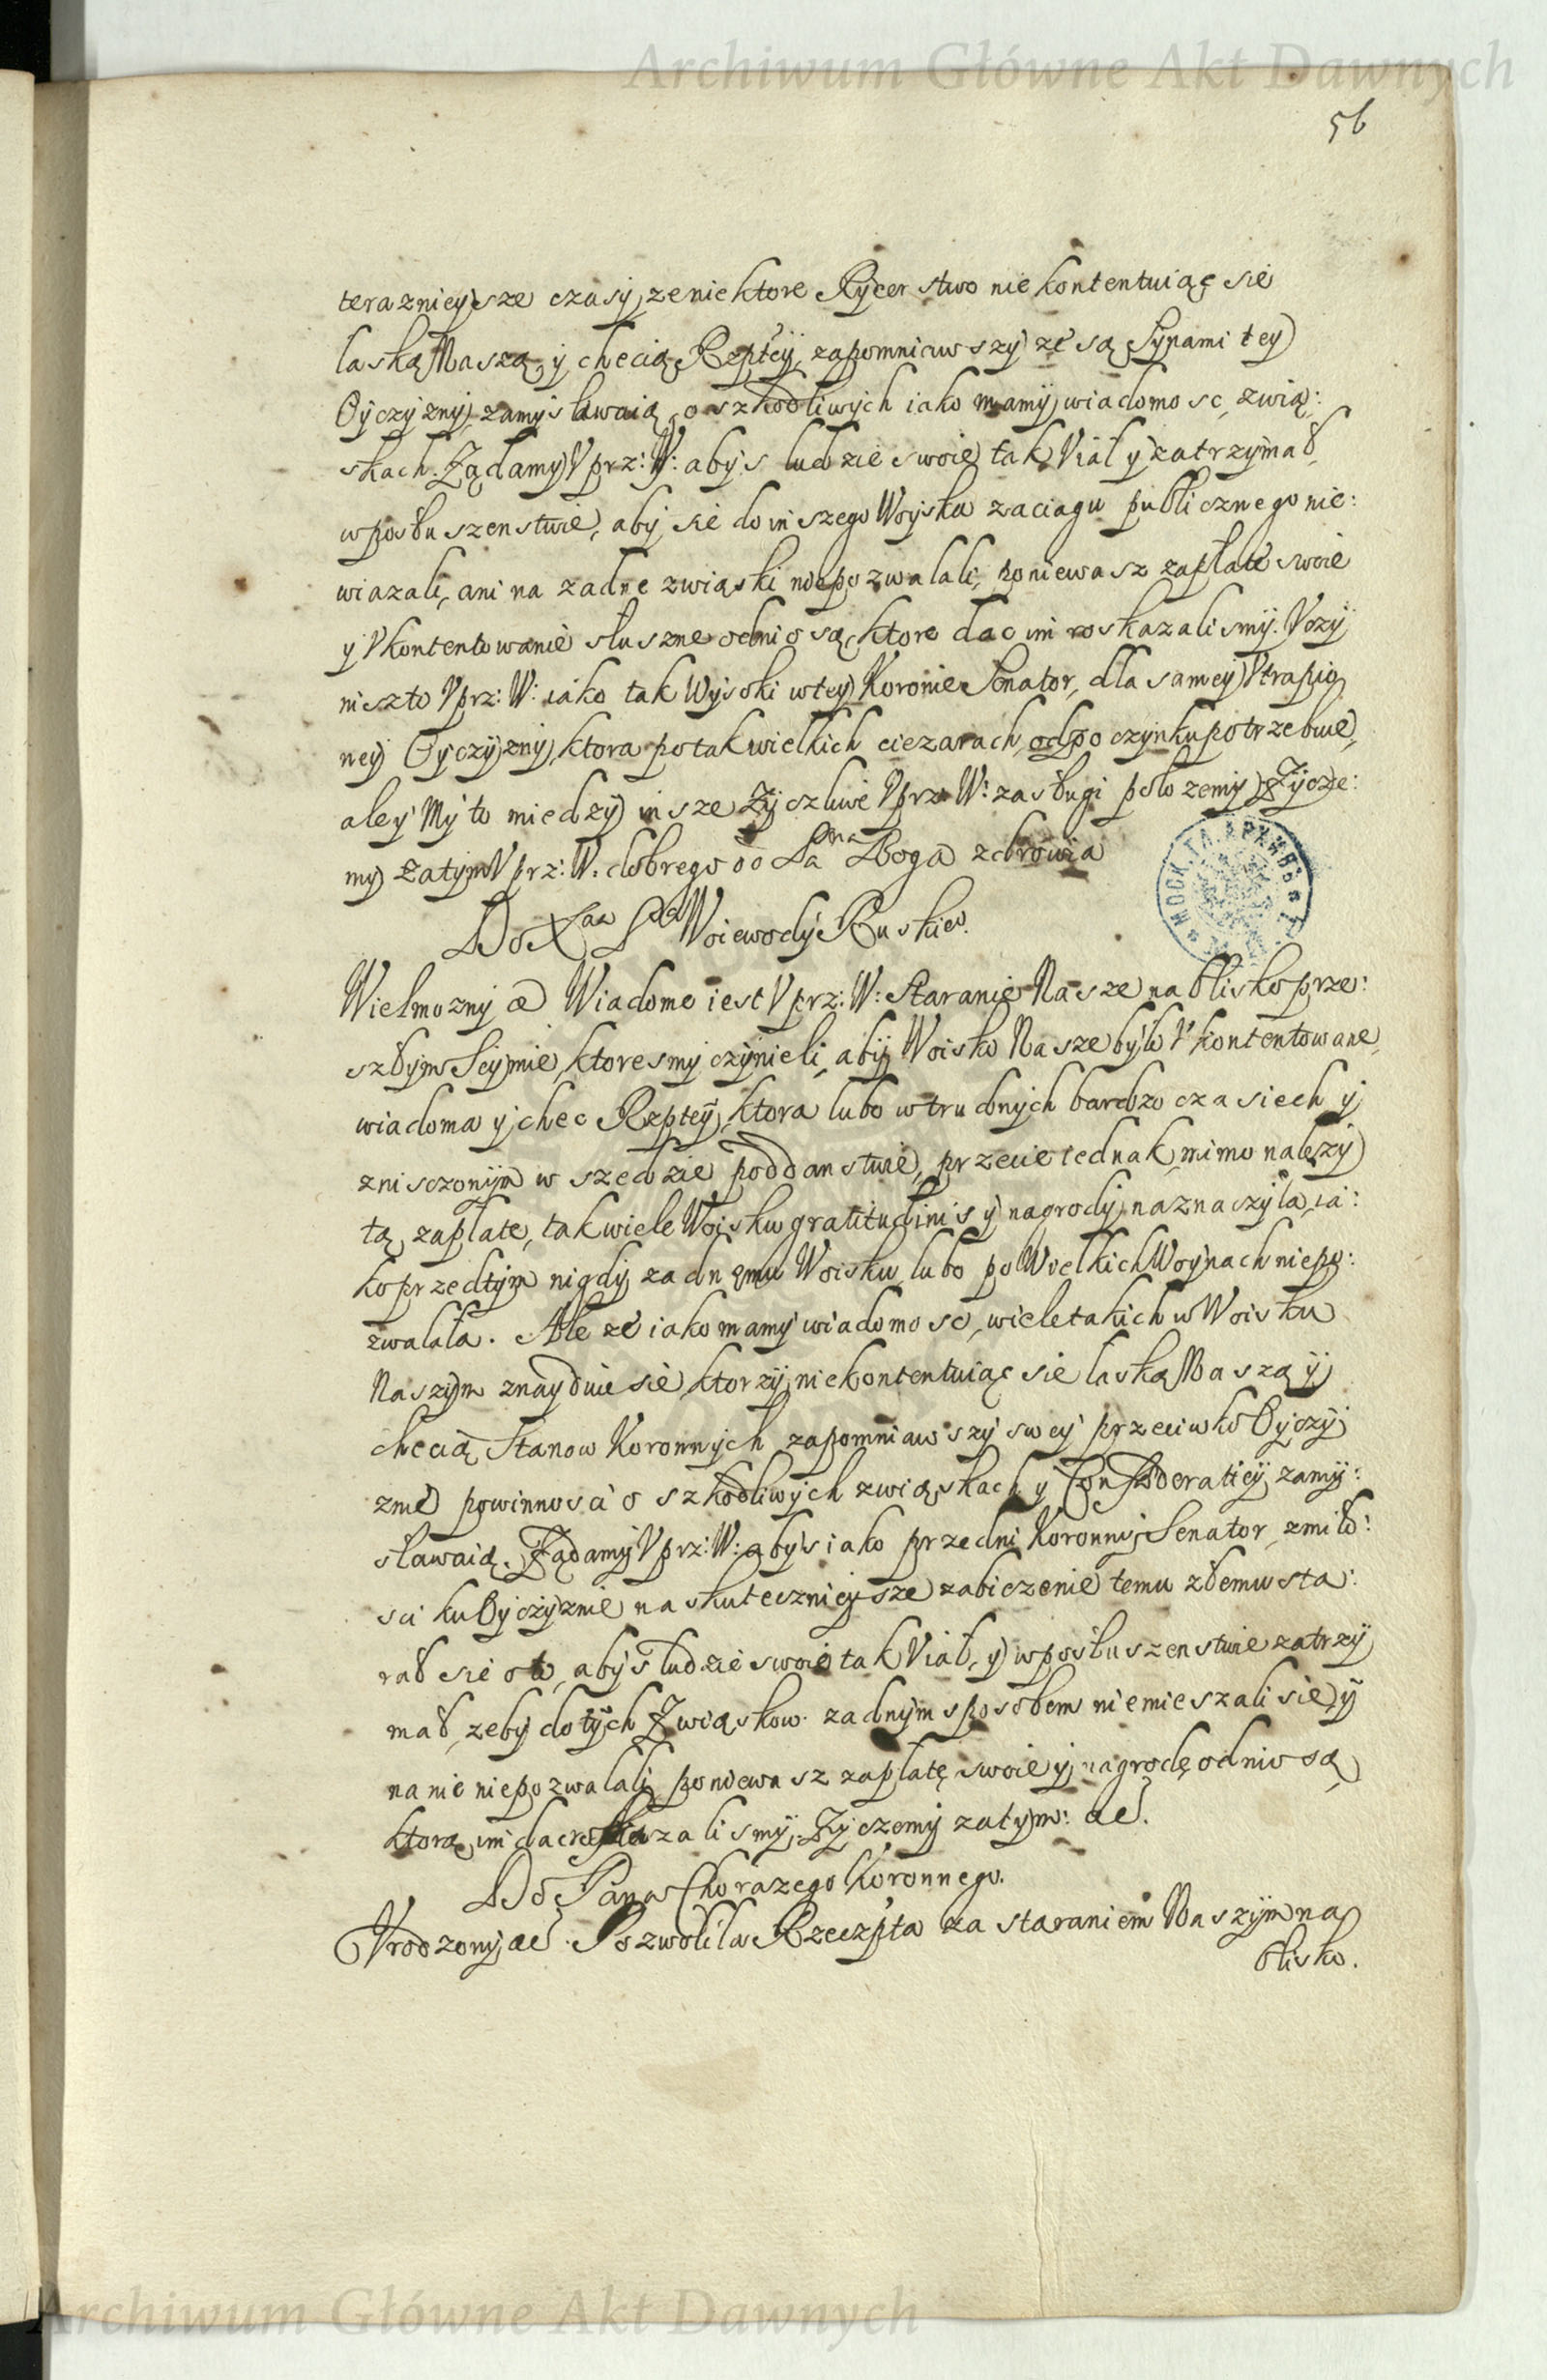 Archiwum Główne Akt Dawnych
56
teraznieysze czasy, ze niektore Rycerstwo nie kontentuiąc się
laską Naszą, y checią Rzptey, zapomniawszy ze są Synami tey
Oyczyzny, zamyslawaią o szkodliwych iako mamy wiadomosc, zwią:
skach. Ządamy Vprz: W: abys ludzie swoie tak Viął y zatrzymał
w posłuszenstwie, aby sie do inszego Woyska zaciagu publicznego nie:
wiazali, ani na zadne związki niepozwalali, poniewasz zapłatę swoie
y Vkontentowanie słuszne odniosą, ktore dac im roskazalismy. Vczy
nisz to Vprz: W: iako tak Wysoki w tey Koronie Senator, dla samey Vtrapio
ney Oyczyzny, ktora po tak wielkich ciezarach, odpoczynku potrzebuie,
ale y My to miedzy insze Zyczliwe Vprz: W: zasługi połozemy. Zycze:
my zatym Vprz: W. dobrego od Pana Boga zdrowia
Do Xcia Pana Woiewody Ruskie°.
Wielmozny æ Wiadome iest Vprz: W: Staranie Nasze na blisko prze:
szłym Seymie, ktoresmy czynieli, aby Woisko Nasze było Vkontentowane,
wiadoma y chec Rzptey, ktora lubo w trudnych bardzo czasiech y
znisczonym wszedzie poddanstwie, przecie iednak mimo nalezy
tą zapłate, tak wiele Woisku gratitudinis y nagrody naznaczyła, ia:
ko przedtym nigdy zadnemu Woisku lubo po Wielkich Woynach niepo:
zwalała. Ale ze iako mamy wiadomosc, wiele takich w Woisku
Naszym znayduie sie, ktorzy nie kontentuiąc sie laską Naszą y
checią Stanow Koronnych zapomniawszy swey przeciwko Oyczy
znie powinnosci o szkodliwych związkach y Confoederatiey zamy:
sławaią. Ządamy Vprz: W: abys iako przedni Koronny Senator, z miło:
sci ku Oyczyznie na skutecznieysze zabiezenie temu złemu sta:
rał sie o to, abys ludzie swoie tak Viął, y w posłuszenstwie zatrzy
mał, zeby do tych Związkow zadnym sposobem niemieszali sie, y
na nie niepozwalali, poniewasz zapłatę swoie y nagrodę odniosą
ktorą im dac roskazalismy. Zyczemy zatym: æ.
Do Pana Chorązego Koronnego.
Vrodzony æ. Pozwoliła Rzeczpta za staraniem Naszym na
blisko.
Archiwum Główne Akt Dawnych